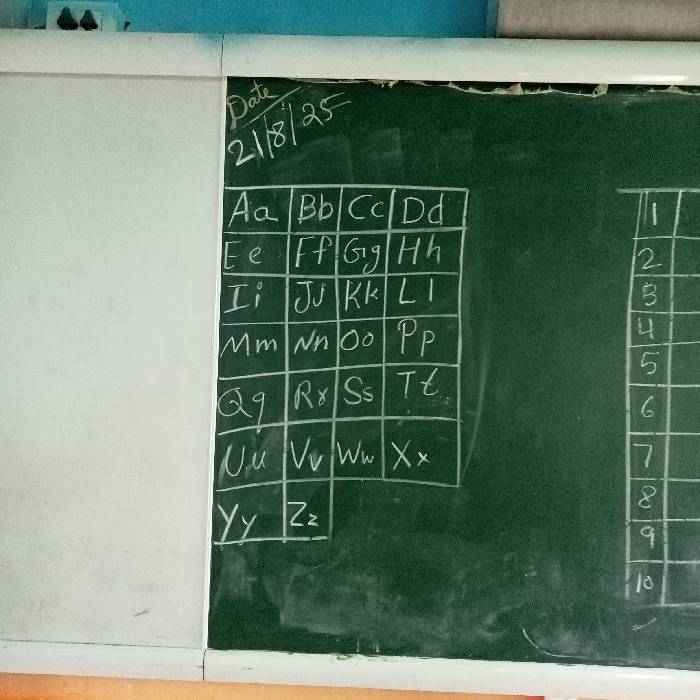 Date
21/8/25
Aa Bb Cc Dd
Ee Ff Gg Hh
Ii Jj Kk Ll
Mm Nn Oo Pp
Qq Rr Ss Tt
Uu Vv Ww Xx
Yy Zz
1
2
3
4
5
6
7
8
9
10